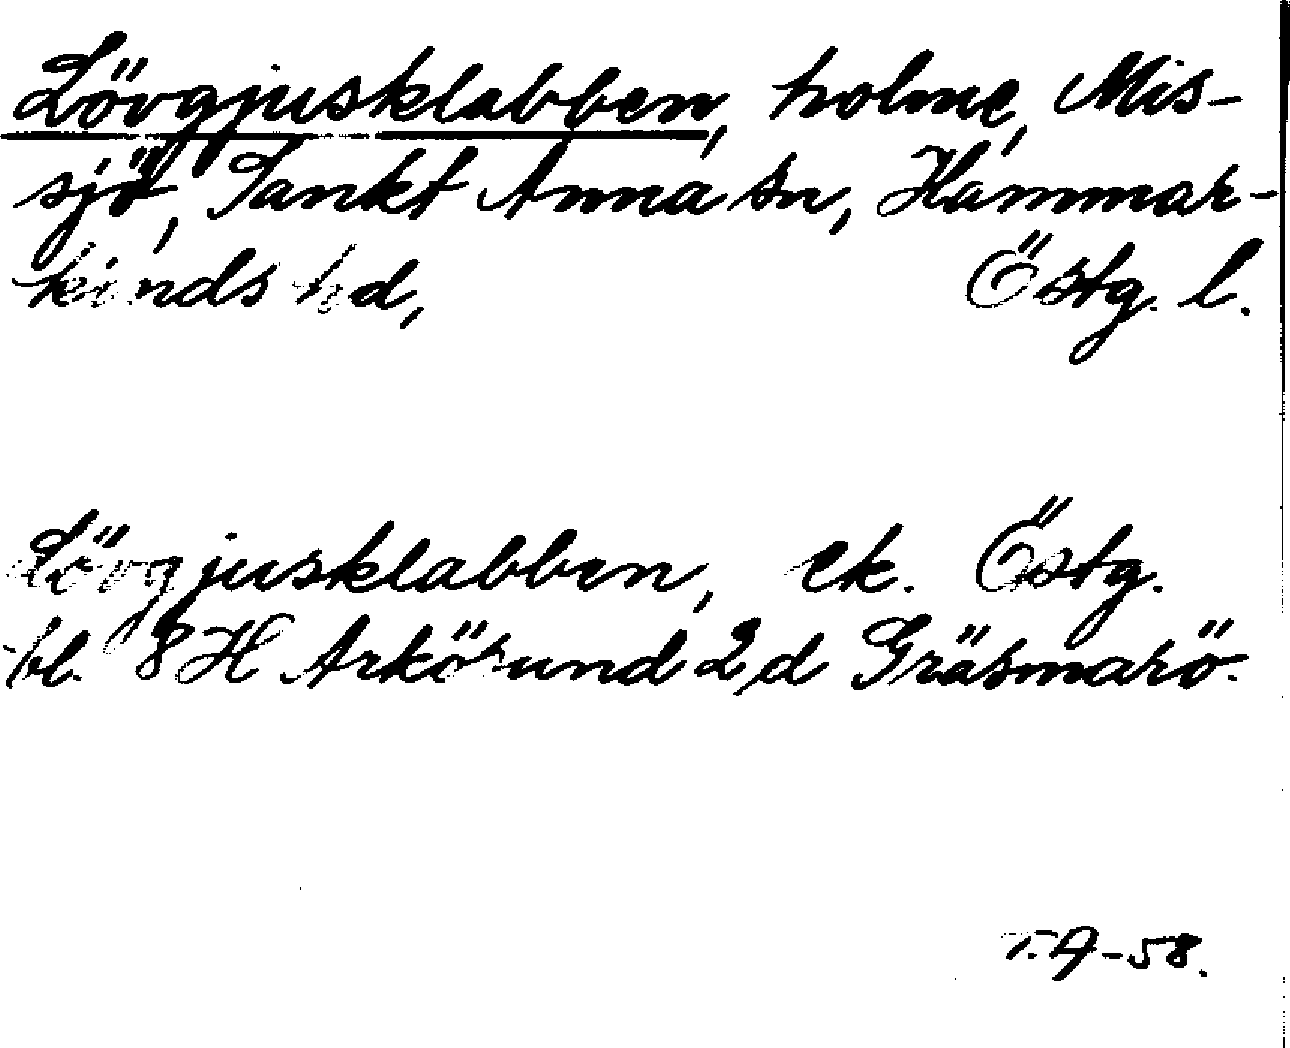 Lövgjusklabben, holme, Mis-
sjö, Sankt Anna sn, Hammar-
kinds hd, Östg. l.
Lövgjusklabben, ek. Östg.
bl. 8 H Arkösund 2,d Gräsmarö.
T.A-58.